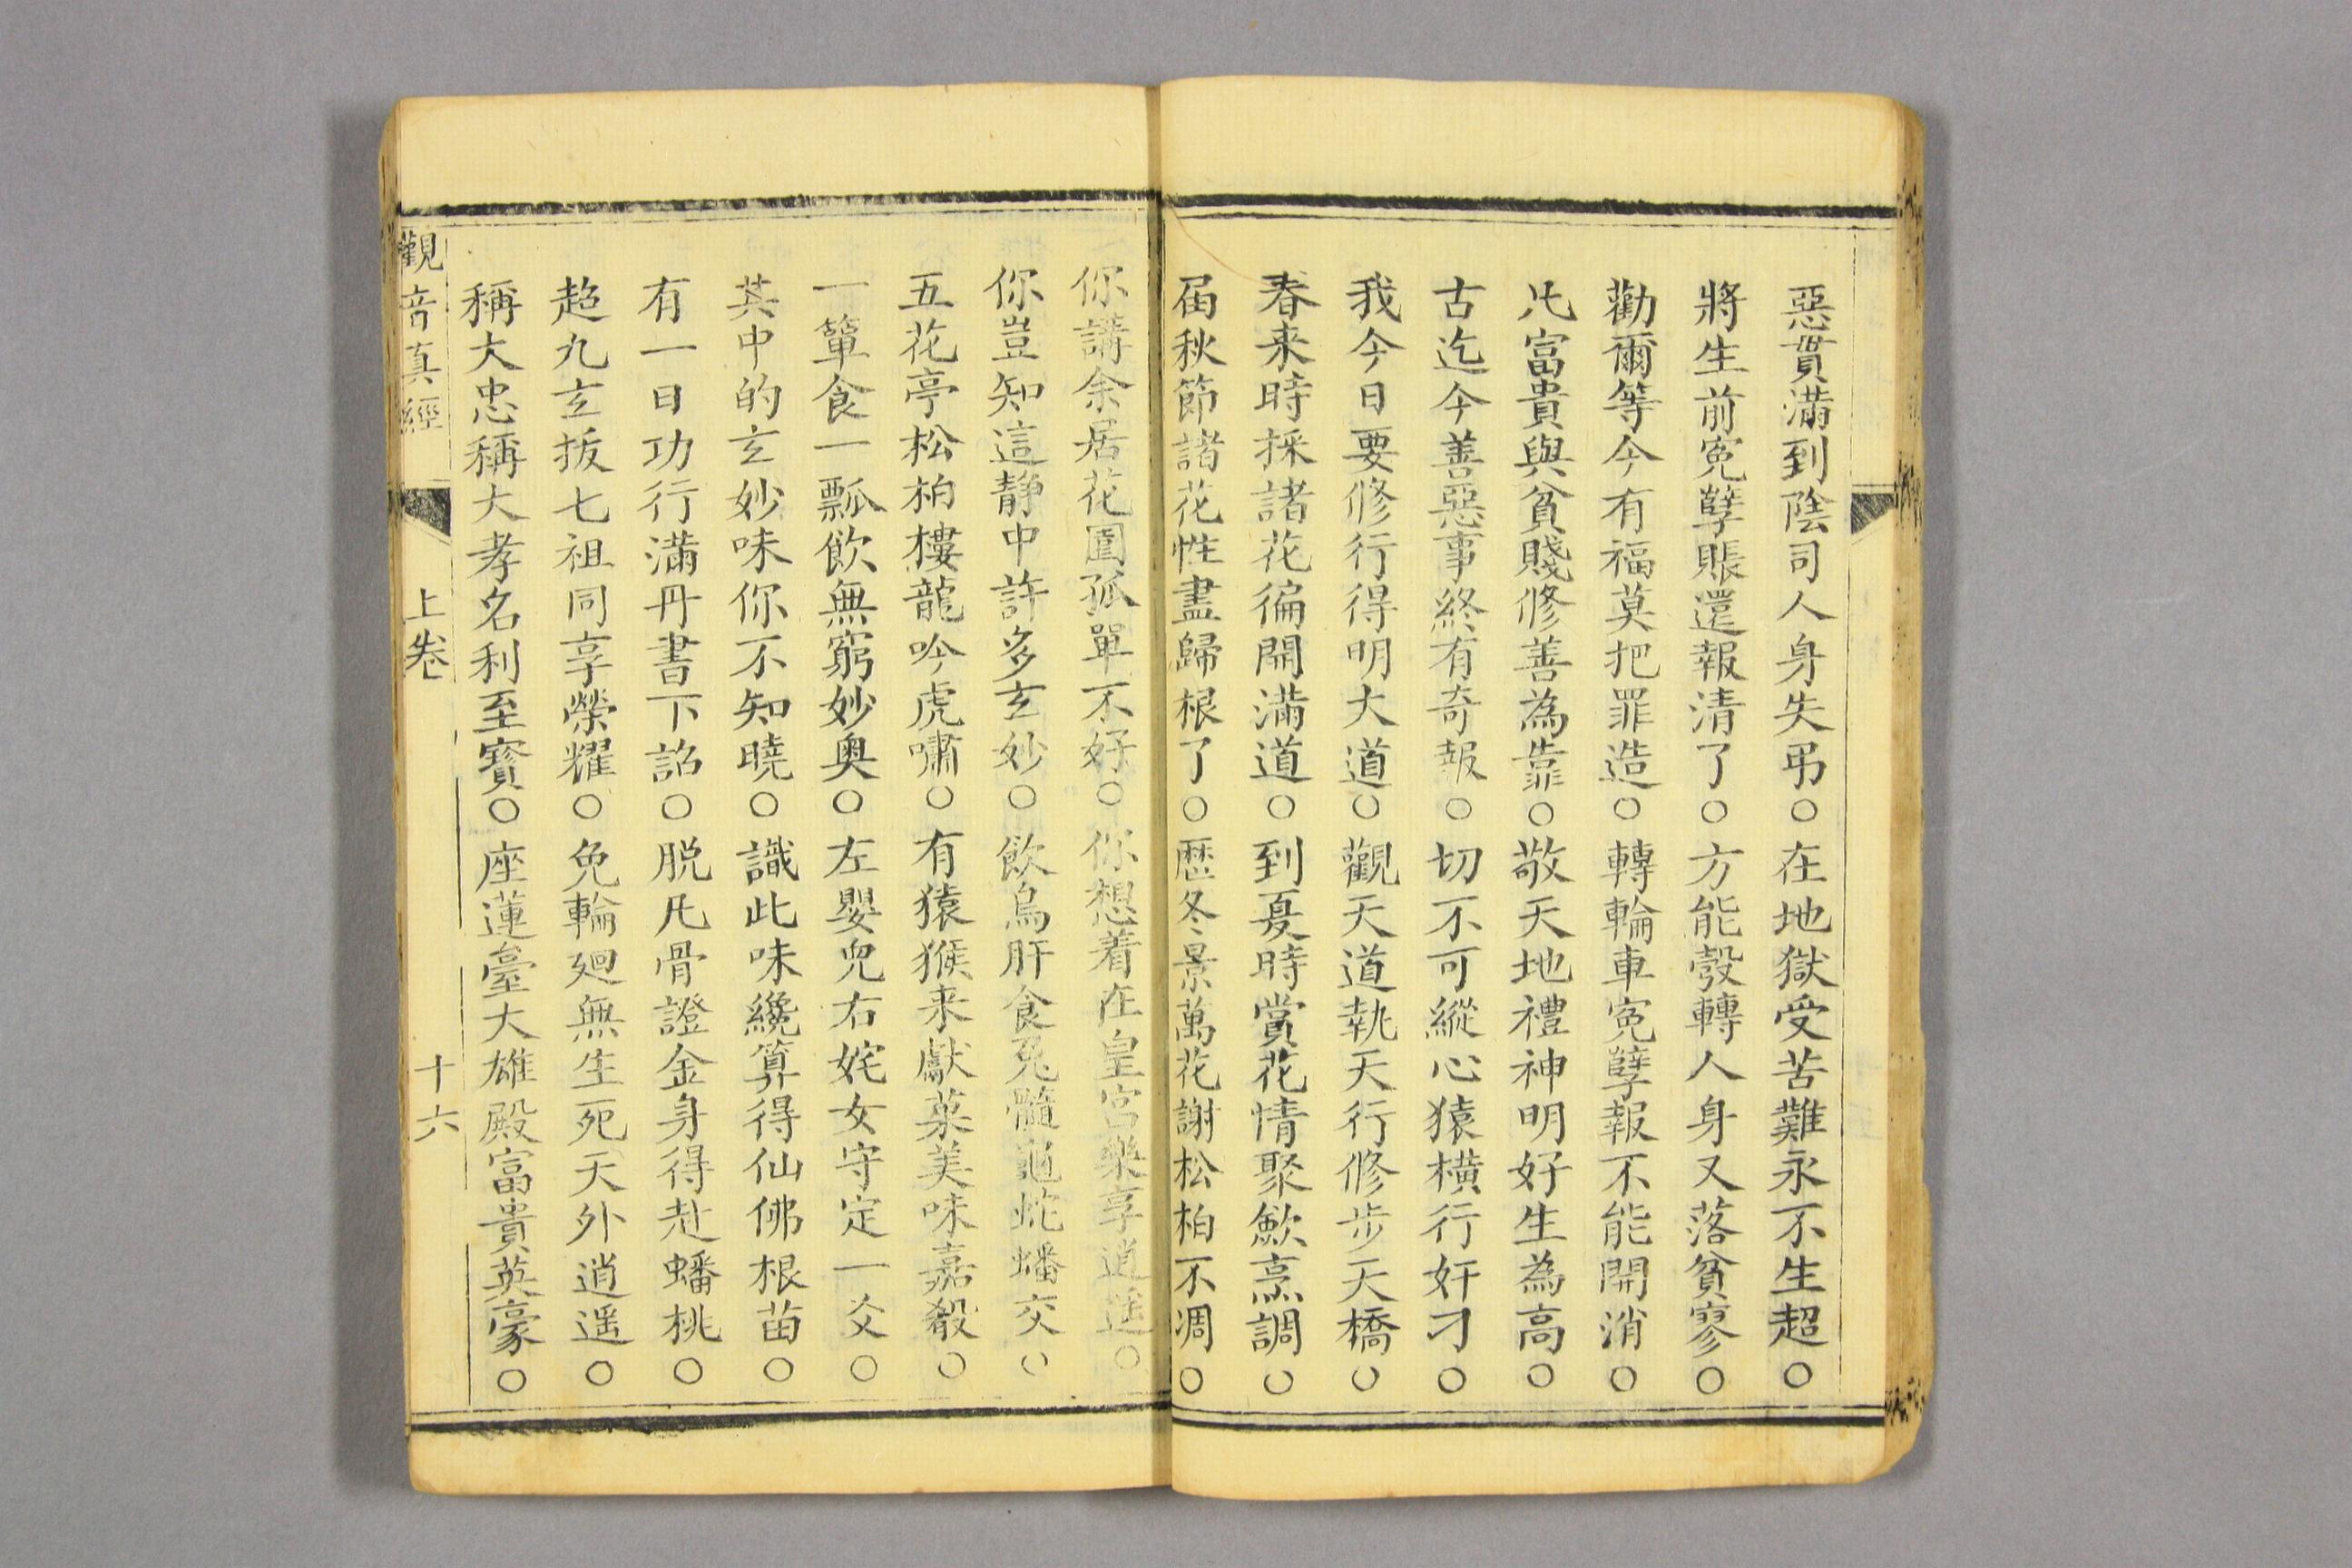 惡貫滿到陰司人身失弔○在地獄受苦難永不生超○
將生前寃孽賬還報清了○方能彀轉人身又落貧寥○
勸爾等今有福莫把罪造○轉輪車寃孽報不能開消○
凢富貴與貧賤修善為靠○敬天地禮神明好生為高○
古迄今善惡事終有奇報○切不可縱心猿橫行奸刁○
我今日要修行得明大道○觀天道執天行修步天橋○
春来時採諸花徧開滿道○到夏時賞花情聚歛烹調○
屆秋節諸花性盡歸根了○歷冬景萬花謝松柏不凋○
你講余居花園孤單不好○你想着在皇宮樂享逍遥○
你豈知這静中許多玄妙○飲烏肝食兎髓龜蛇蟠交○
五花亭松柏樓龍吟虎嘯○有猿猴来獻菓美味嘉殽○
一簞食一瓢飲無窮妙奧○左嬰兒右姹女守定一爻○
其中的玄妙味你不知曉○識此味纔算得仙佛根苗○
有一日功行滿丹書下詔○脱凡骨證金身得赴蟠桃○
超九玄拔七祖同享榮耀○免輪廻無生死天外逍遥○
稱大忠稱大孝名利至寳○座蓮臺大雄殿富貴英豪○
觀音真經 上卷 十六